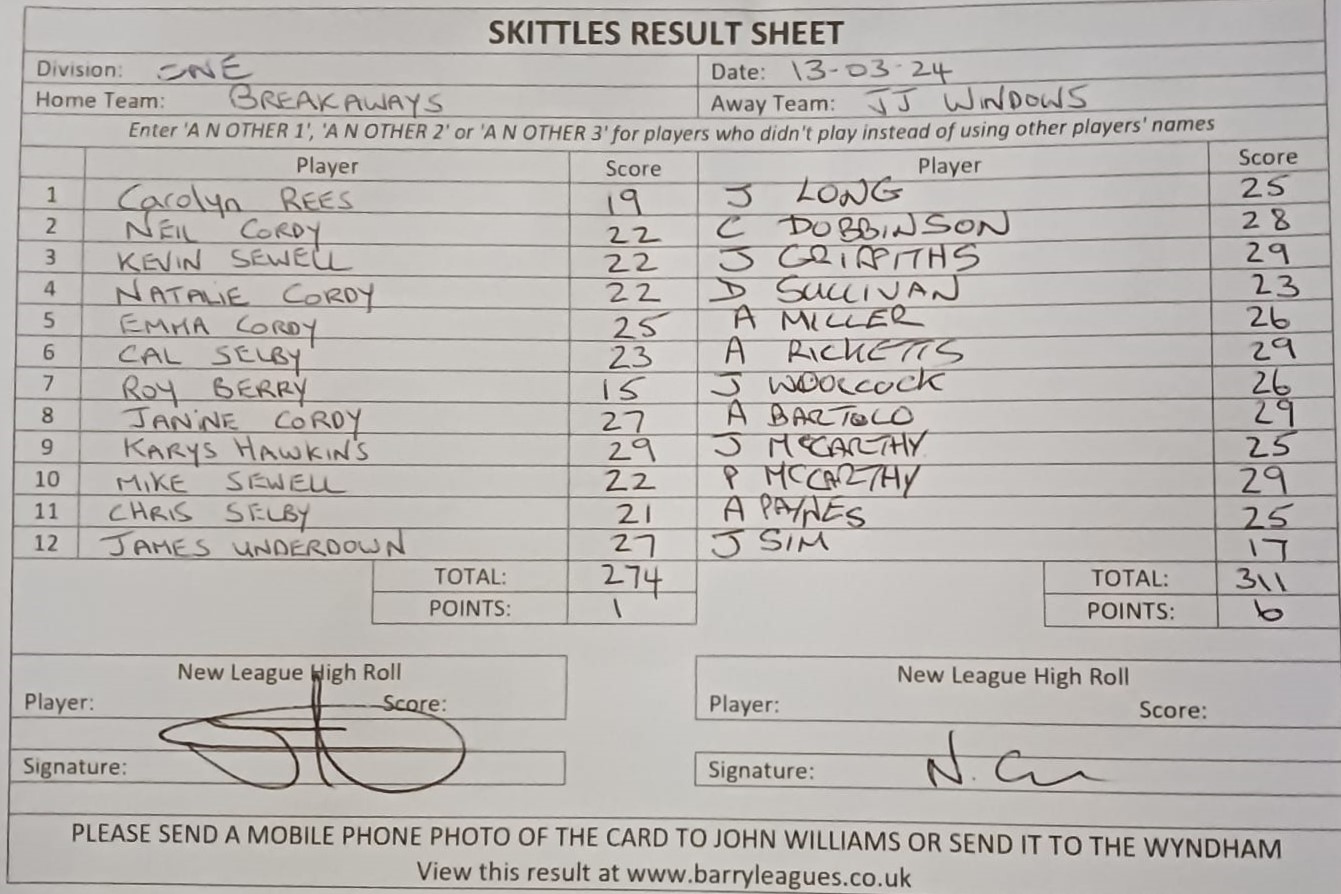 SKITTLES RESULT SHEET
Division: ONE Date: 13-03-24
Home Team: BREAKAWAYS Away Team: JJ WINDOWS
Enter 'A N OTHER 1', 'A N OTHER 2' or 'A N OTHER 3' for players who didn't play instead of using other players' names
Player Score Player Score
1 Carolyn REES 19 J LONG 25
2 NEIL CORDY 22 C DOBBINSON 28
3 KEVIN SEWELL 22 J GRIFFITHS 29
4 NATALIE CORDY 22 D SULLIVAN 23
5 EMMA CORDY 25 A MILLER 26
6 CAL SELBY 23 A RICKETTS 29
7 ROY BERRY 15 J WOOLCOCK 26
8 JANINE CORDY 27 A BARTOLO 29
9 KARYS HAWKINS 29 J MCCARTHY 25
10 MIKE SEWELL 22 P MCCARTHY 29
11 CHRIS SELBY 21 A PAYNES 25
12 JAMES UNDERDOWN 27 J SIM 17
TOTAL: 274 TOTAL: 311
POINTS: 1 POINTS: 6
New League High Roll New League High Roll
Player: Score: Player: Score:
Signature: Signature: N.
PLEASE SEND A MOBILE PHONE PHOTO OF THE CARD TO JOHN WILLIAMS OR SEND IT TO THE WYNDHAM
View this result at www.barryleagues.co.uk